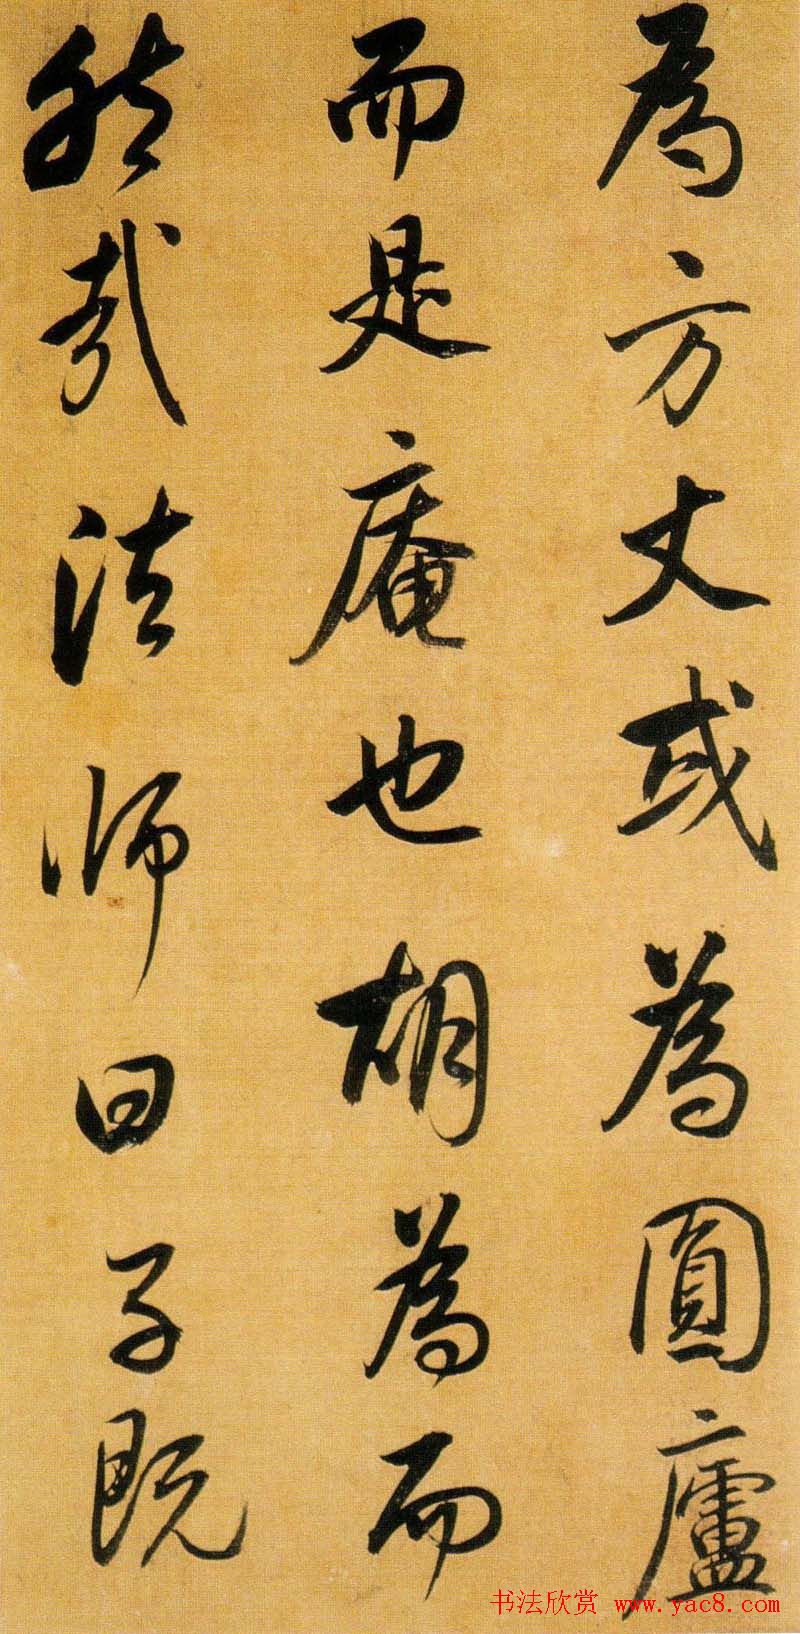 為方丈或為圓廬
而是庵也胡為而
然哉法師曰子既
书法欣赏 www.yac8.com